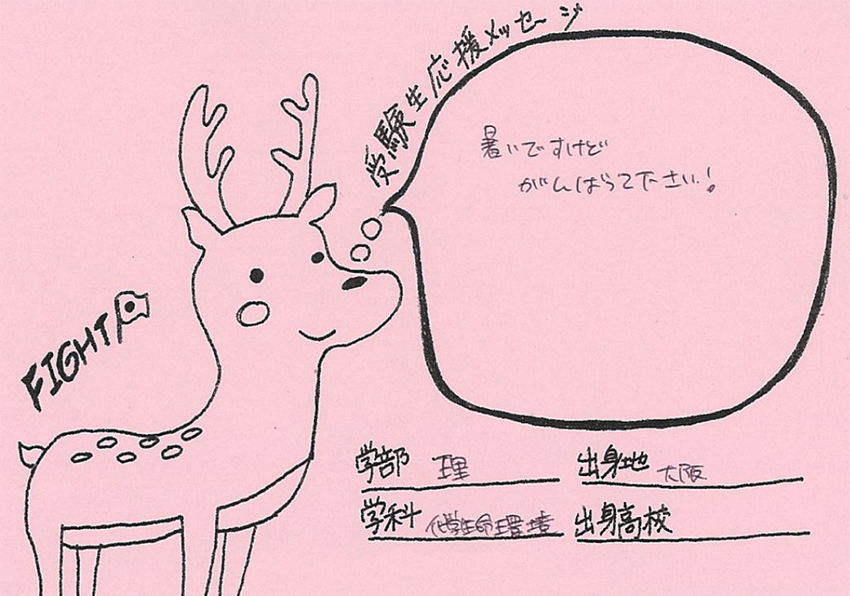 受験生応援メッセージ
暑いですけど
がんばって下さい!
FIGHT
学部 理
出身地 大阪
学科 化学生命環境
出身高校